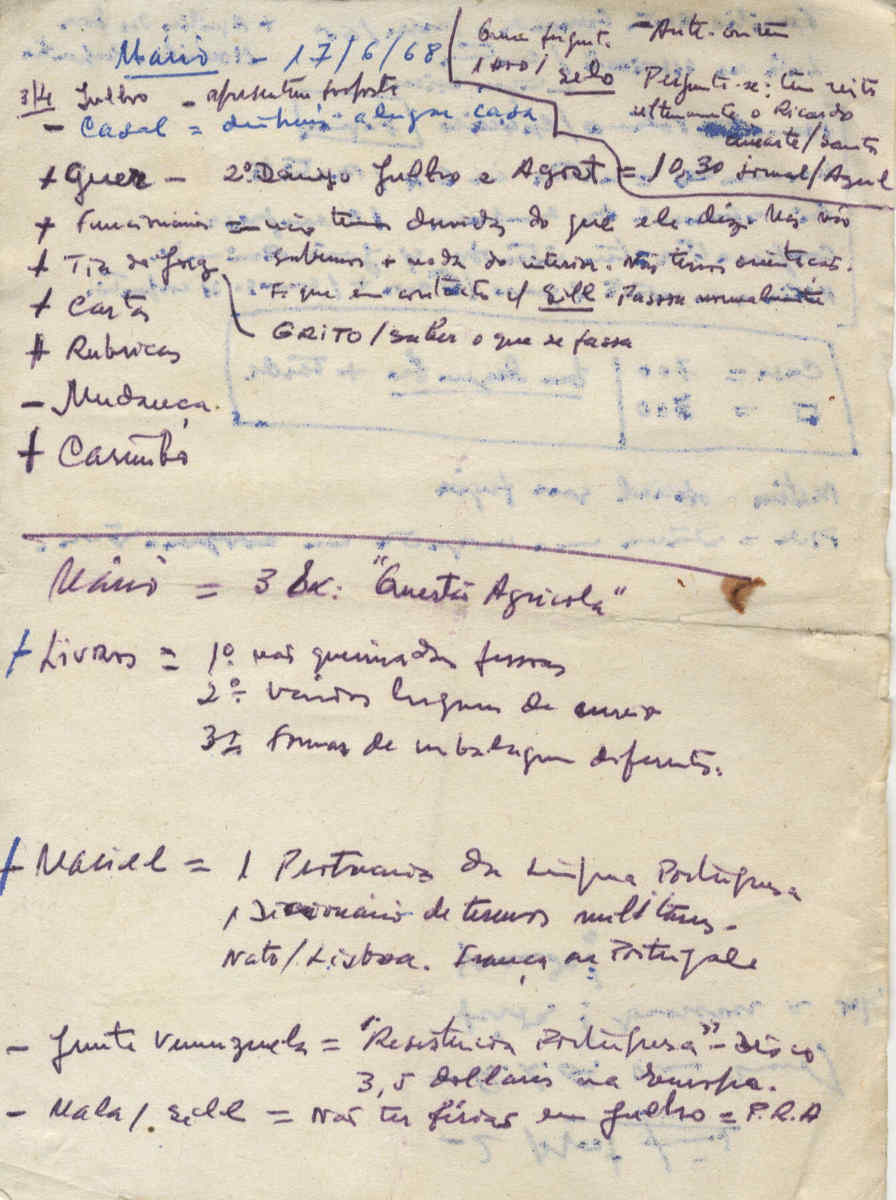 Mário - 17/6/68
1000/ selo
- Ante-ontem
Pergunta-se: tem visto
ultimamente o Ricardo
/Santos
3/4 Julho - apresentam proposta
- Casal = dinheiro alugar casa
+ Guer - 2º Domingo Julho e Agost = 10,30 jornal/Azul
+ Funcionários = não temos duvidas do que ele diz. Mas não
+ Tia do Jorg - sabemos + nada do interior. Nós temos
Fique em contacto c/ Sill. Passou normalmente
+ Cartas
GRITO / saber o que se passa
+ Rubricas
- Mudança.
+ Carimbo
Mário = 3 Ex: "Questão Agrícola"
+ Livros = 1º nas queimadas pessoas
2º- vários lugares de envio
3º Formas de embalagem diferentes.
+ Maciel = 1 Prontuário da Língua Portuguesa
1 Dicionário de termos militares.
Nato/Lisboa. França ou Portugal
- Junta Venuzuela = "Resistencia Portuguesa" - Disco
3,5 dollars na Europa.
- Mala/ Sill = Não ter férias em Julho = P.R.A